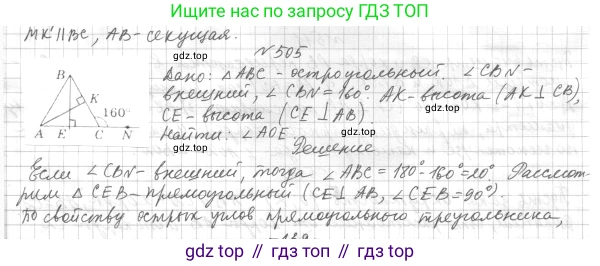 Ищите нас по запросу ГДЗ ТОП
MK || BC, AB - секущая.
gdz.top
N 505
Дано: △ABC - остроугольный. ∠CBN -
внешний, ∠CBN = 160° AK - высота (AK ⊥ CB),
CE - высота (CE ⊥ AB)
Найти: ∠AOE gdz.top
Решение
B
K
160°
A E C N
gdz.top
Если ∠CBN - внешний, тогда ∠ABC = 180° - 160° = 20°. Рассмот-
рим △ CEB - прямоугольный (CE ⊥ AB, ∠CEB = 90°).
По свойству острых углов прямоугольного треугольника,
gdz top // гдз топ // gdz.top // гдз.топ